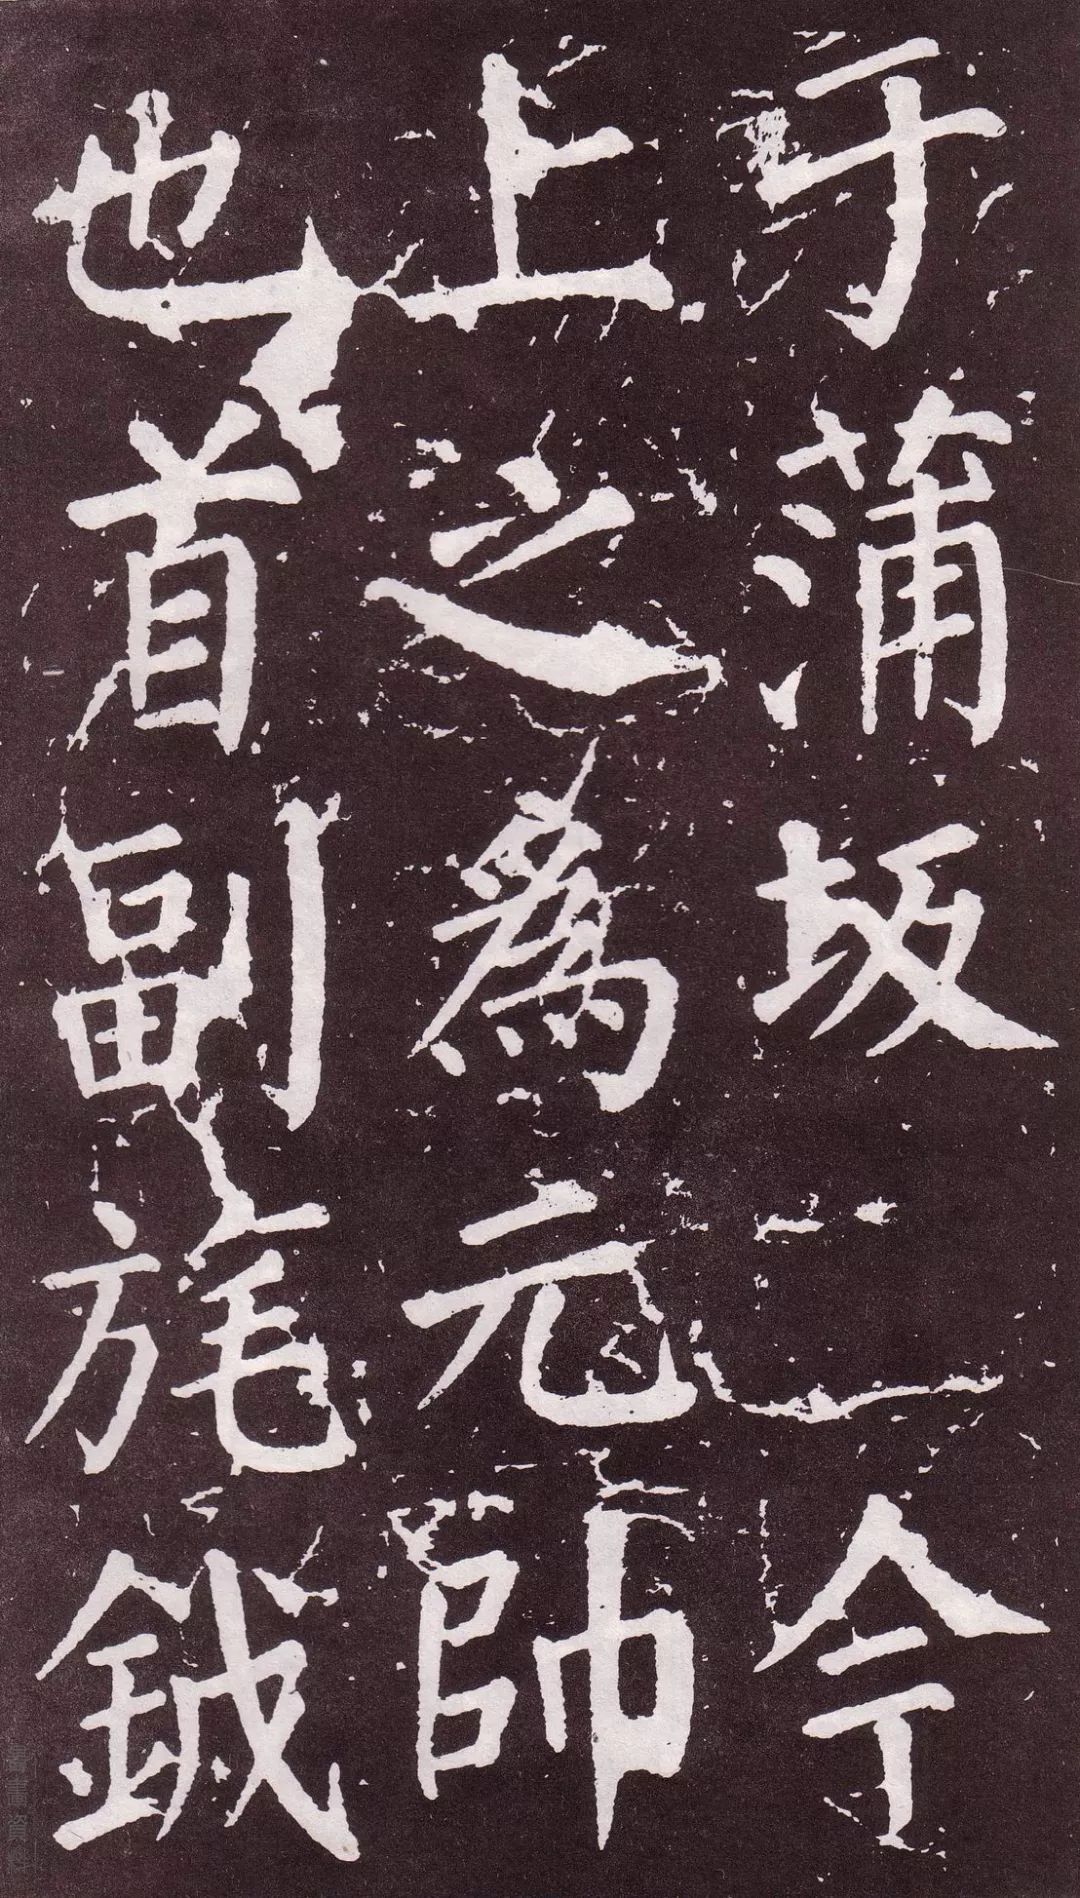 于蒲坂一今
上之為元帥
也首副旄鉞